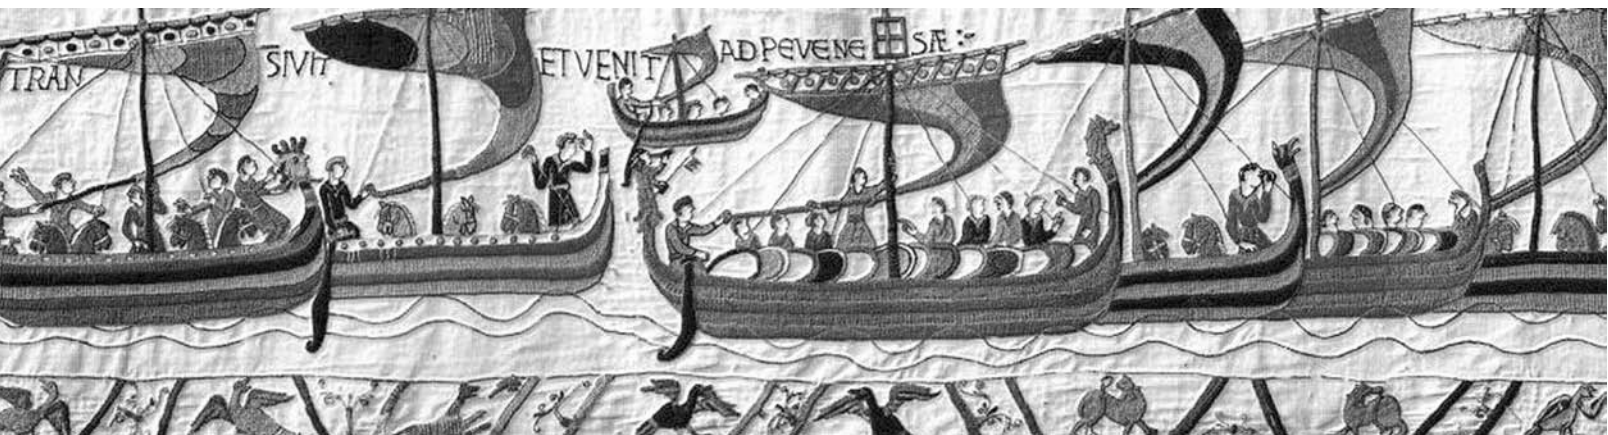 TRAN SIVIT ET VENIT AD PEVENE SÆ :-